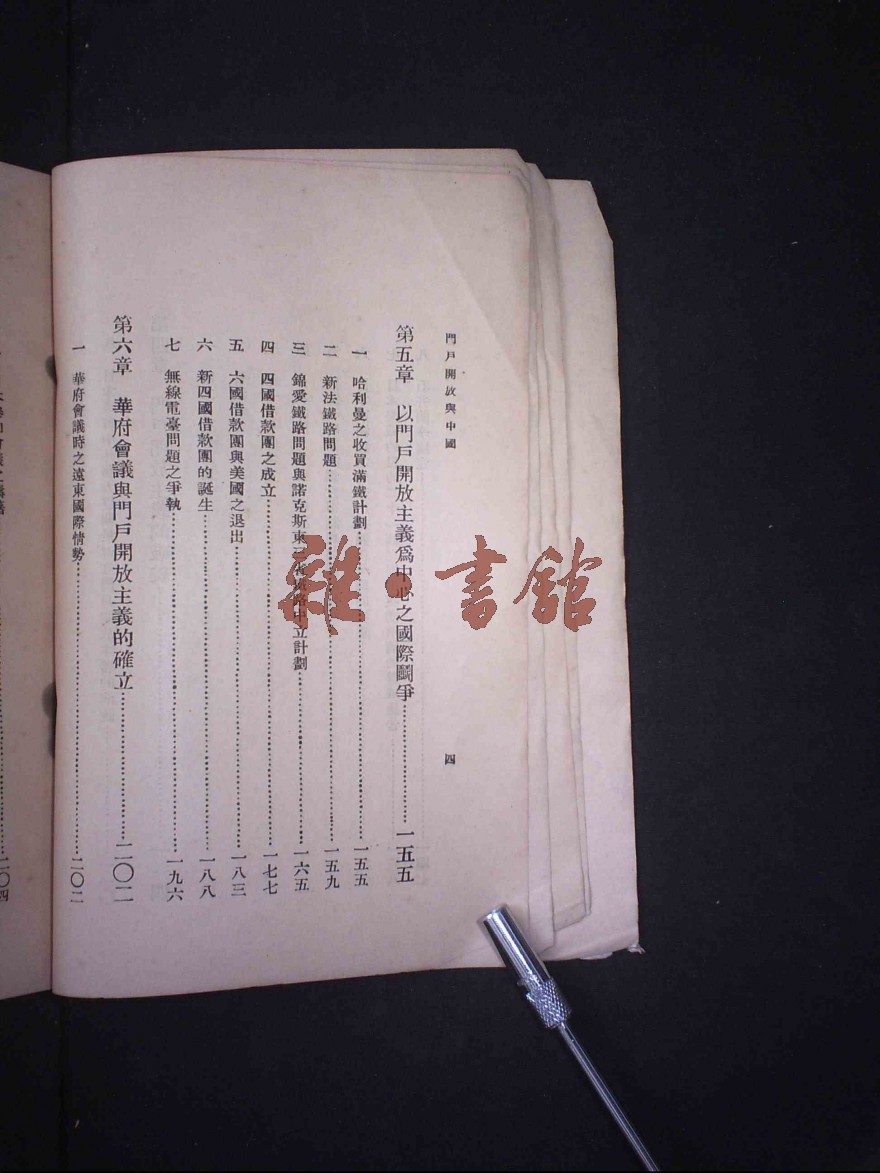 門戶開放與中國
四
第五章 以門戶開放主義爲中心之國際鬭爭…………一五五
一 哈利曼之收買滿鐵計劃…………一五五
二 新法鐵路問題…………一五九
三 錦愛鐵路問題與諾克斯東三省鐵路中立計劃…………一六五
四 四國借款團之成立…………一七七
五 六國借款團與美國之退出…………一八三
六 新四國借款團的誕生…………一八八
七 無線電臺問題之爭執…………一九六
第六章 華府會議與門戶開放主義的確立…………二〇二
一 華府會議時之遠東國際情勢…………二〇二
二〇四
雜·書館